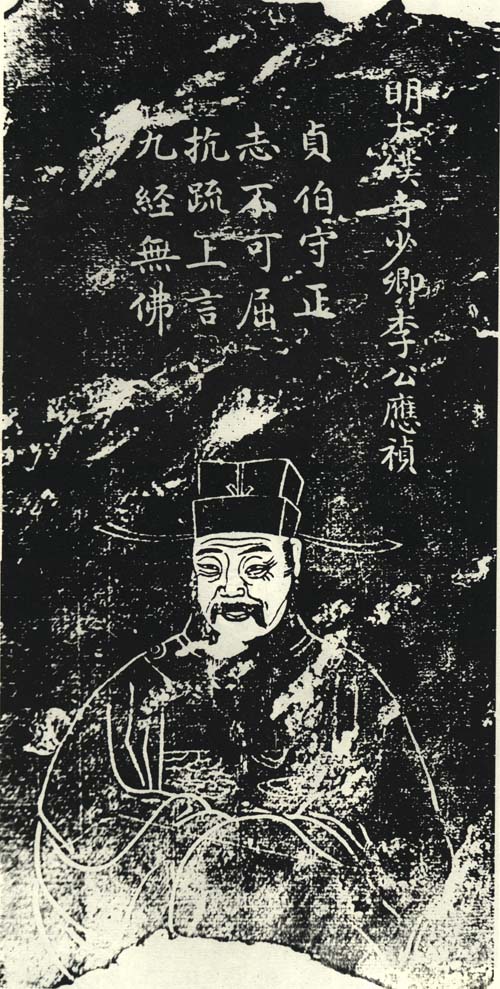 明太僕寺少卿李公應禎
貞伯守正
志不可屈
抗疏上言
九經無佛